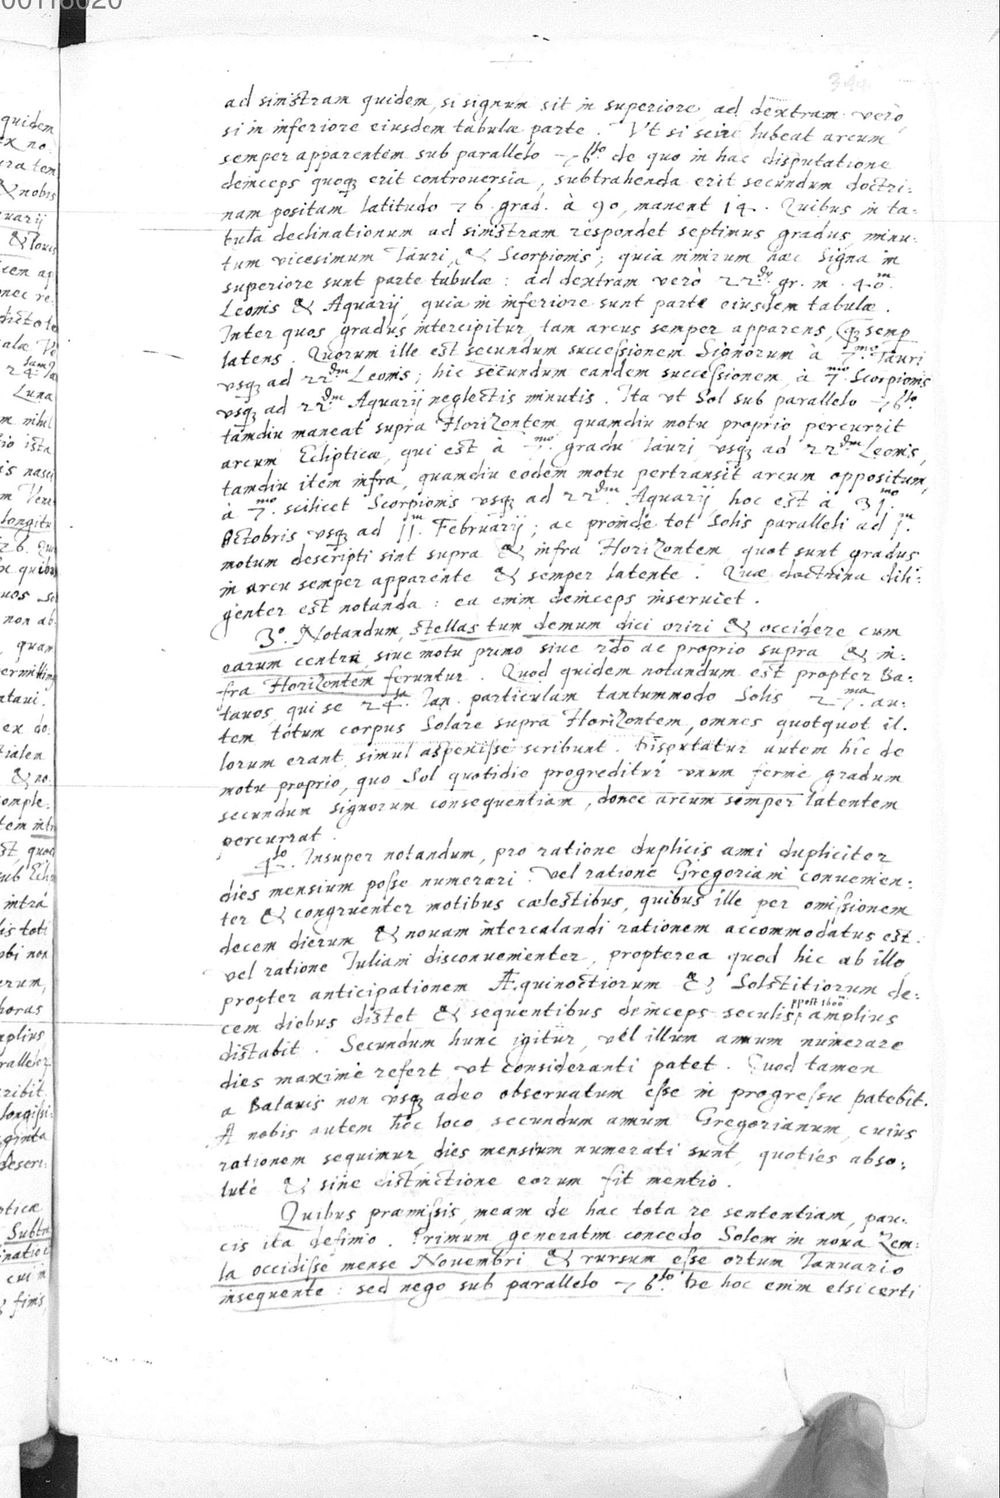 00118020
344
ad sinistram quidem, si signum sit in superiore, ad dextram verò
si in inferiore eiusdem tabulæ parte. Vt si scire lubeat arcum
semper apparentem sub parallelo 76.to de quo in hac disputatione
deinceps quoq; erit controuersia, subtrahenda erit secundum doctri-
nam positam latitudo 76. grad. à 90, manent 14. Quibus in ta-
bula declinationum ad sinistram respondet septimus gradus, minu-
tum vicesimum Tauri, & Scorpionis; quia nimirum hæc signa in
superiore sunt parte tabulæ: ad dextram verò 22.dus gr. m. 40.m
Leonis & Aquarij, quia in inferiore sunt parte eiusdem tabulæ.
Inter quos gradus intercipitur tam arcus semper apparens, q; semp
latens. Quorum ille est secundum successionem Signorum à 7.mo Tauri
vsq; ad 22.dm Leonis; hic secundum eandem successionem, à 7.mo Scorpionis
vsq; ad 22.dm Aquarij neglectis minutis. Ita vt Sol sub parallelo 76.to
tamdiu maneat supra Horizontem quamdiu motu proprio percurrit
arcum Eclipticæ, qui est à 7.mo gradu Tauri vsq; ad 22.dm Leonis,
tamdiu item infra, quamdiu eodem motu pertransit arcum oppositum,
à 7.mo scilicet Scorpionis vsq; ad 22.dm Aquarij hoc est à 31.mo
Octobris vsq; ad 11.m Februarij; ac proinde tot Solis paralleli ad 1.m
motum descripti sint supra & infra Horizontem, quot sunt gradus
in arcu semper apparente & semper latente. Quæ doctrina dili-
genter est notanda: ea enim deinceps inseruiet.
3°. Notandum, stellas tum demum dici oriri & occidere cum
earum centra, siue motu primo siue 2do ac proprio supra & in-
fra Horizontem feruntur. Quod quidem notandum est propter Ba-
tauos, qui se 24.ta Ian. particulam tantummodo Solis 27.ma au-
tem totum corpus Solare supra Horizontem, omnes quotquot il-
lorum erant, simul aspexisse scribunt. Disputatur autem hic de
motu proprio, quo Sol quotidie progreditur vnum ferme gradum
secundum signorum consequentiam, donec arcum semper latentem
percurrat.
4.to Insuper notandum, pro ratione duplicis anni dupliciter
dies mensium posse numerari: vel ratione Gregoriani conuenien-
ter & congruenter motibus cælestibus, quibus ille per omissionem
decem dierum & nouam intercalandi rationem accommodatus est:
vel ratione Iuliani disconuenienter, propterea quod hic ab illo
propter anticipationem Æquinoctiorum & Solstitiorum de-
cem diebus distet & sequentibus deinceps seculis post 1600 amplius
distabit. Secundum hunc igitur, vel illum annum numerare
dies maxime refert vt consideranti patet. Quod tamen
a Batauis non vsq; adeo obseruatum esse in progressu patebit.
A nobis autem hoc loco secundum annum Gregorianum, cuius
rationem sequimur, dies mensium numerati sunt, quoties abso-
lutè & sine distinctione eorum fit mentio.
Quibus præmissis, meam de hac tota re sententiam, pau-
cis ita definio. Primum generatim concedo Solem in noua Zem-
la occidisse mense Nouembri & rursum esse ortum Ianuario
insequente: sed nego sub parallelo 76.to De hoc enim etsi certi